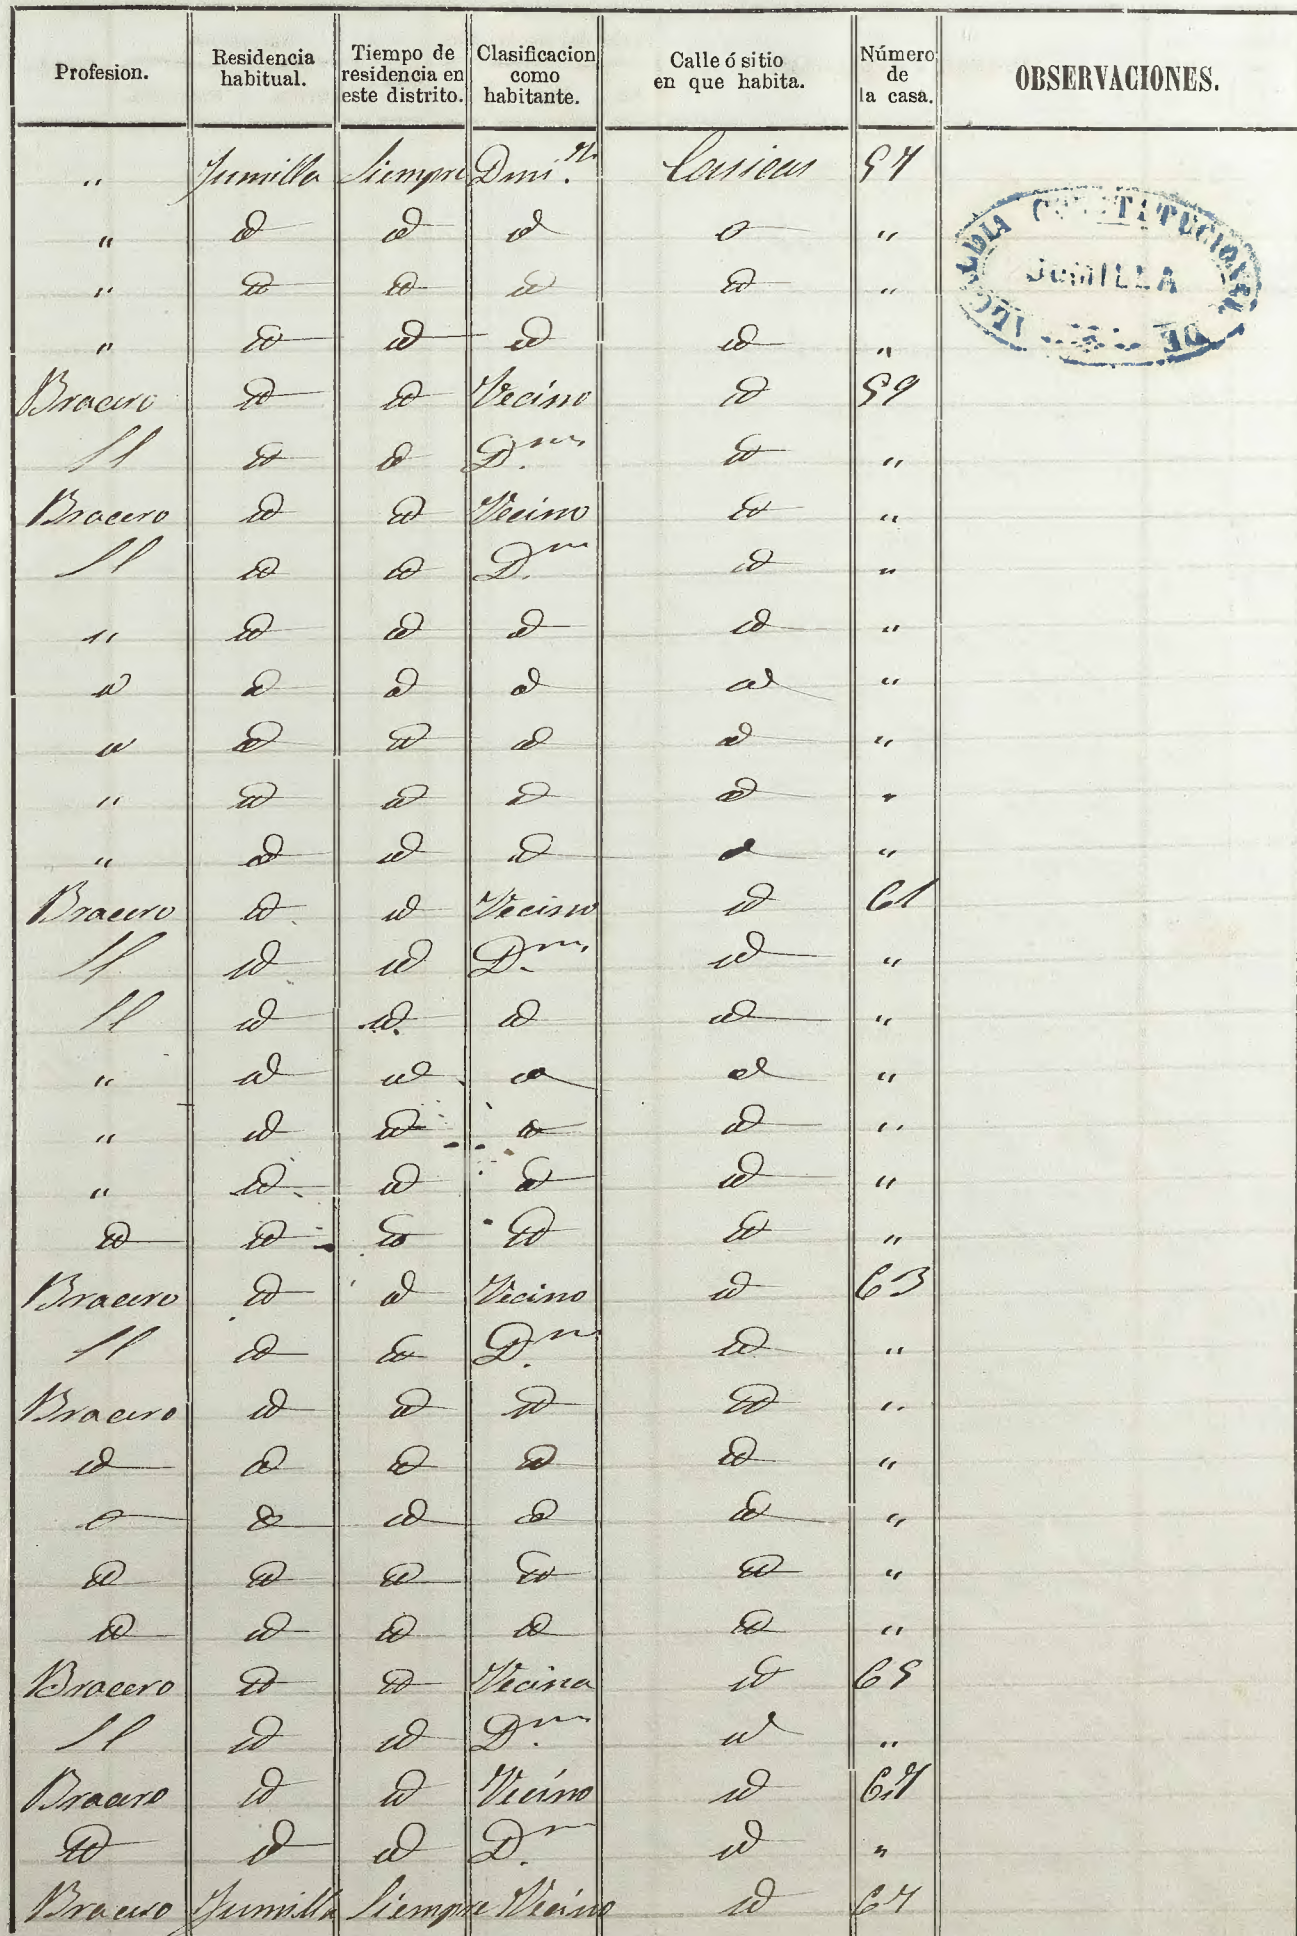 Profesion. Residencia habitual. Tiempo de residencia en este distrito. Clasificacion como habitante. Calle ó sitio en que habita. Número de la casa. OBSERVACIONES.
" Jumilla Siempre 57
" id id id id "
" id id id id "
" id id id id "
Bracero id id Vecino id 59
" id id D.m id "
Bracero id id Vecino id "
" id id D.m id "
" id id id id "
id id id id id "
id id id id id "
" id id id id "
" id id id id "
Bracero id id Vecino id 61
" id id D.m id "
" id id id id "
" id id id id "
" id id id id "
" id id id id "
id id id id id "
Bracero id id Vecino id 63
" id id D.m id "
Bracero id id id id "
id id id id id "
id id id id id "
id id id id id "
id id id id id "
Bracero id id Vecina id 65
" id id D.m id "
Bracero id id Vecino id 67
id id id D.m id "
Bracero Jumilla Siempre Vecino id 67
ALCALDIA CONSTITUCIONAL DE JUMILLA